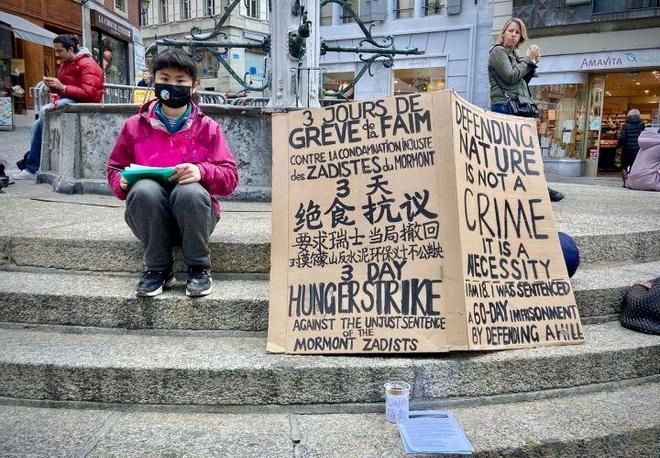 3 JOURS DE
GRÈVE de la FAIM
CONTRE LA CONDAMNATION INJUSTE
des ZADISTES du MORMONT
3 天
绝食抗议
要求瑞士当局撤回
山反水泥环保 不公判决
3 DAY
HUNGER STRIKE
AGAINST THE UNJUST SENTENCE
OF THE
MORMONT ZADISTS
DEFENDING
NATURE
IS NOT A
CRIME
IT IS A
NECESSITY
I'M 18. I WAS SENTENCED
A 60-DAY IMPRISONMENT
BY DEFENDING A HILL
AMAVITA